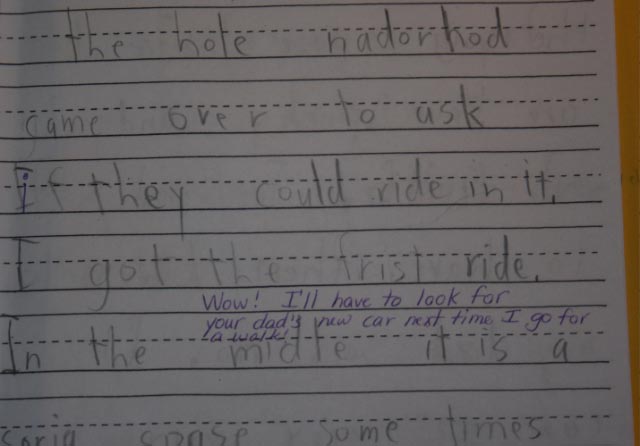 the hole nadorhod
came over to ask
If they could ride in it.
I got the frist ride.
Wow! I'll have to look for
your dad's new car next time I go for
a walk!
In the midle it is a
some times